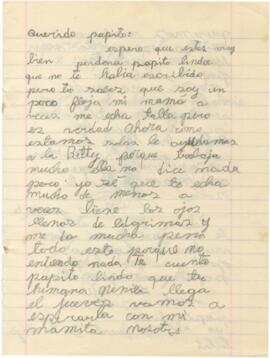 Querido papito:
espero que estes muy
bien perdona papito lindo
que no te habia escribido
pero tu sabes que soy un
poco floja mi mamá a
veces me echa talla pero
es verdad Ahora como
estamos solas le ayudamos
a la Pitty porque trabaja
mucho Ella no dice nada
pero yo sé que te echa
mucho de menos a
veces tiene los ojos
llenos de lágrimas y
me da mucha pena
todo esto porque no
entiendo nada Te cuento
papito lindo que tu
humana llega
el jueves vamos a
esperarla con mi
mamita nosotras